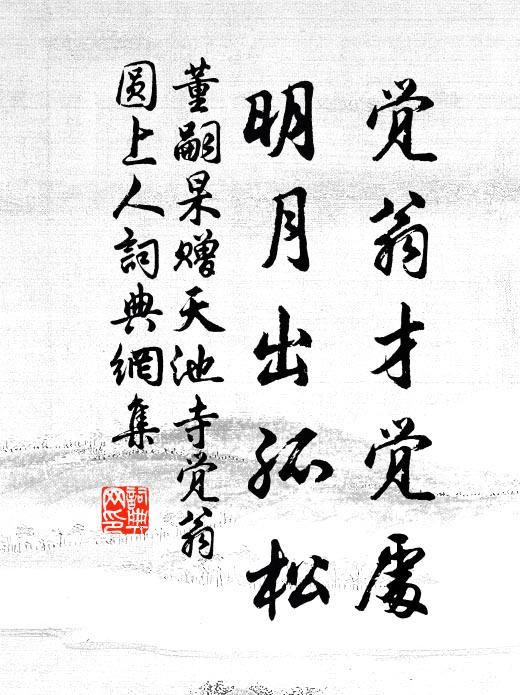 觉翁才觉處
明月出孤松
董嗣杲赠天池寺觉翁
圆上人詞典網集
詞典
网印